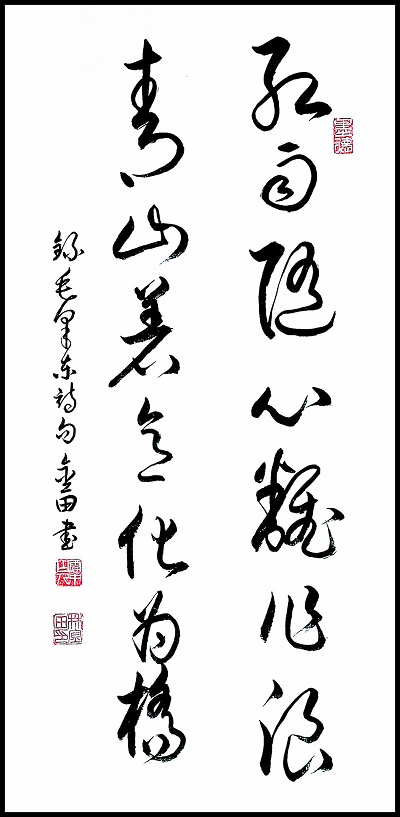 红雨随心翻作浪
青山着意化为橋
録毛泽东詩句金田书